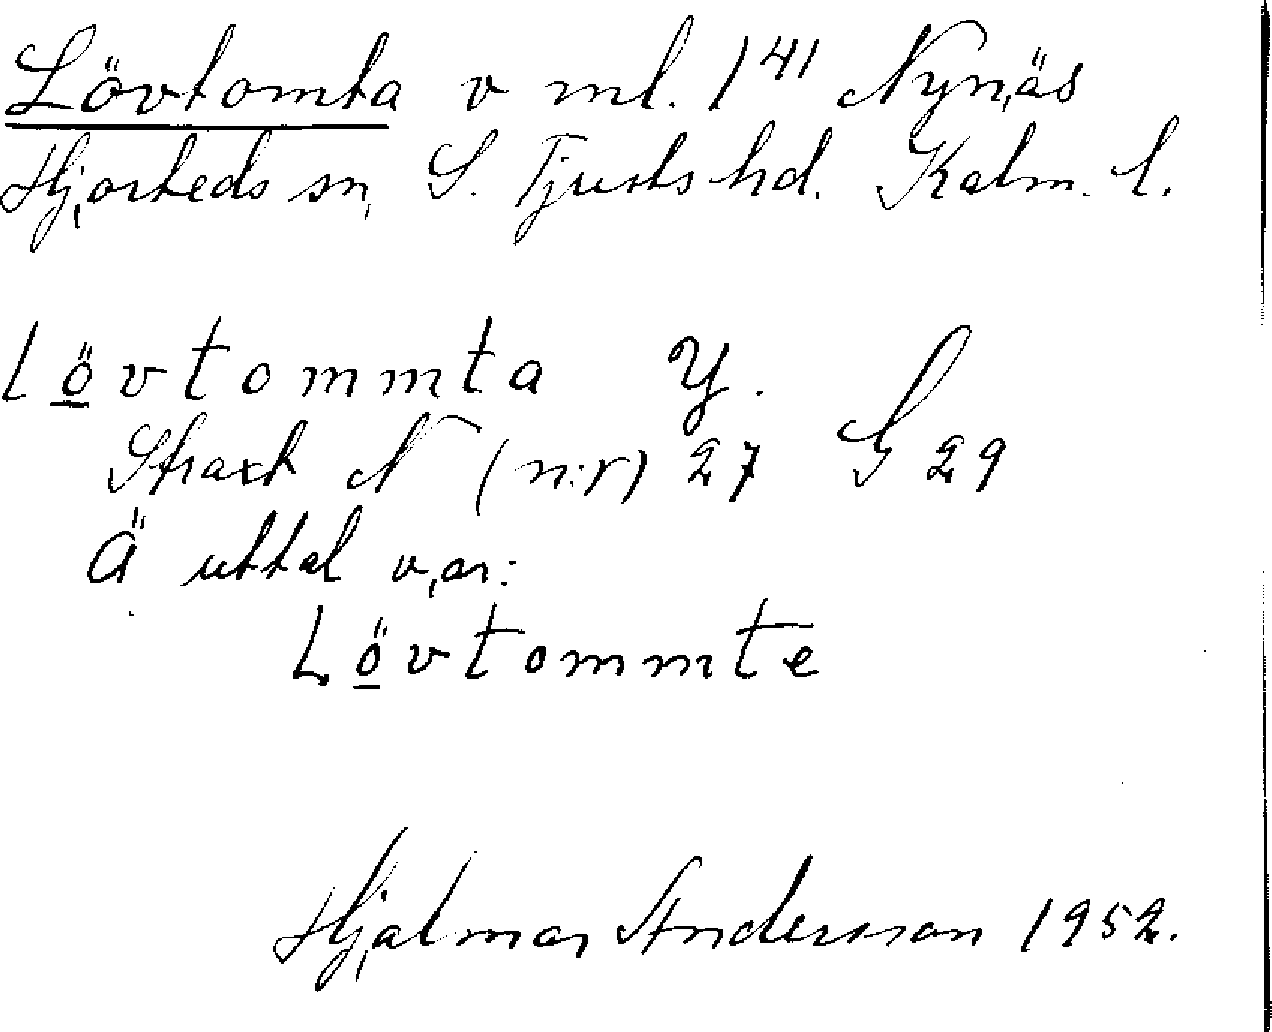 Lövtomta v ml. 1⁴¹ Nynäs
Hjorteds sn, S. Tjusts hd. Kalm. l.
Lövtommta Y.
Strax N (n:r) 27 G 29
Ä uttal v,ar:
Lövtommte
Hjalmar Andersson 1952.